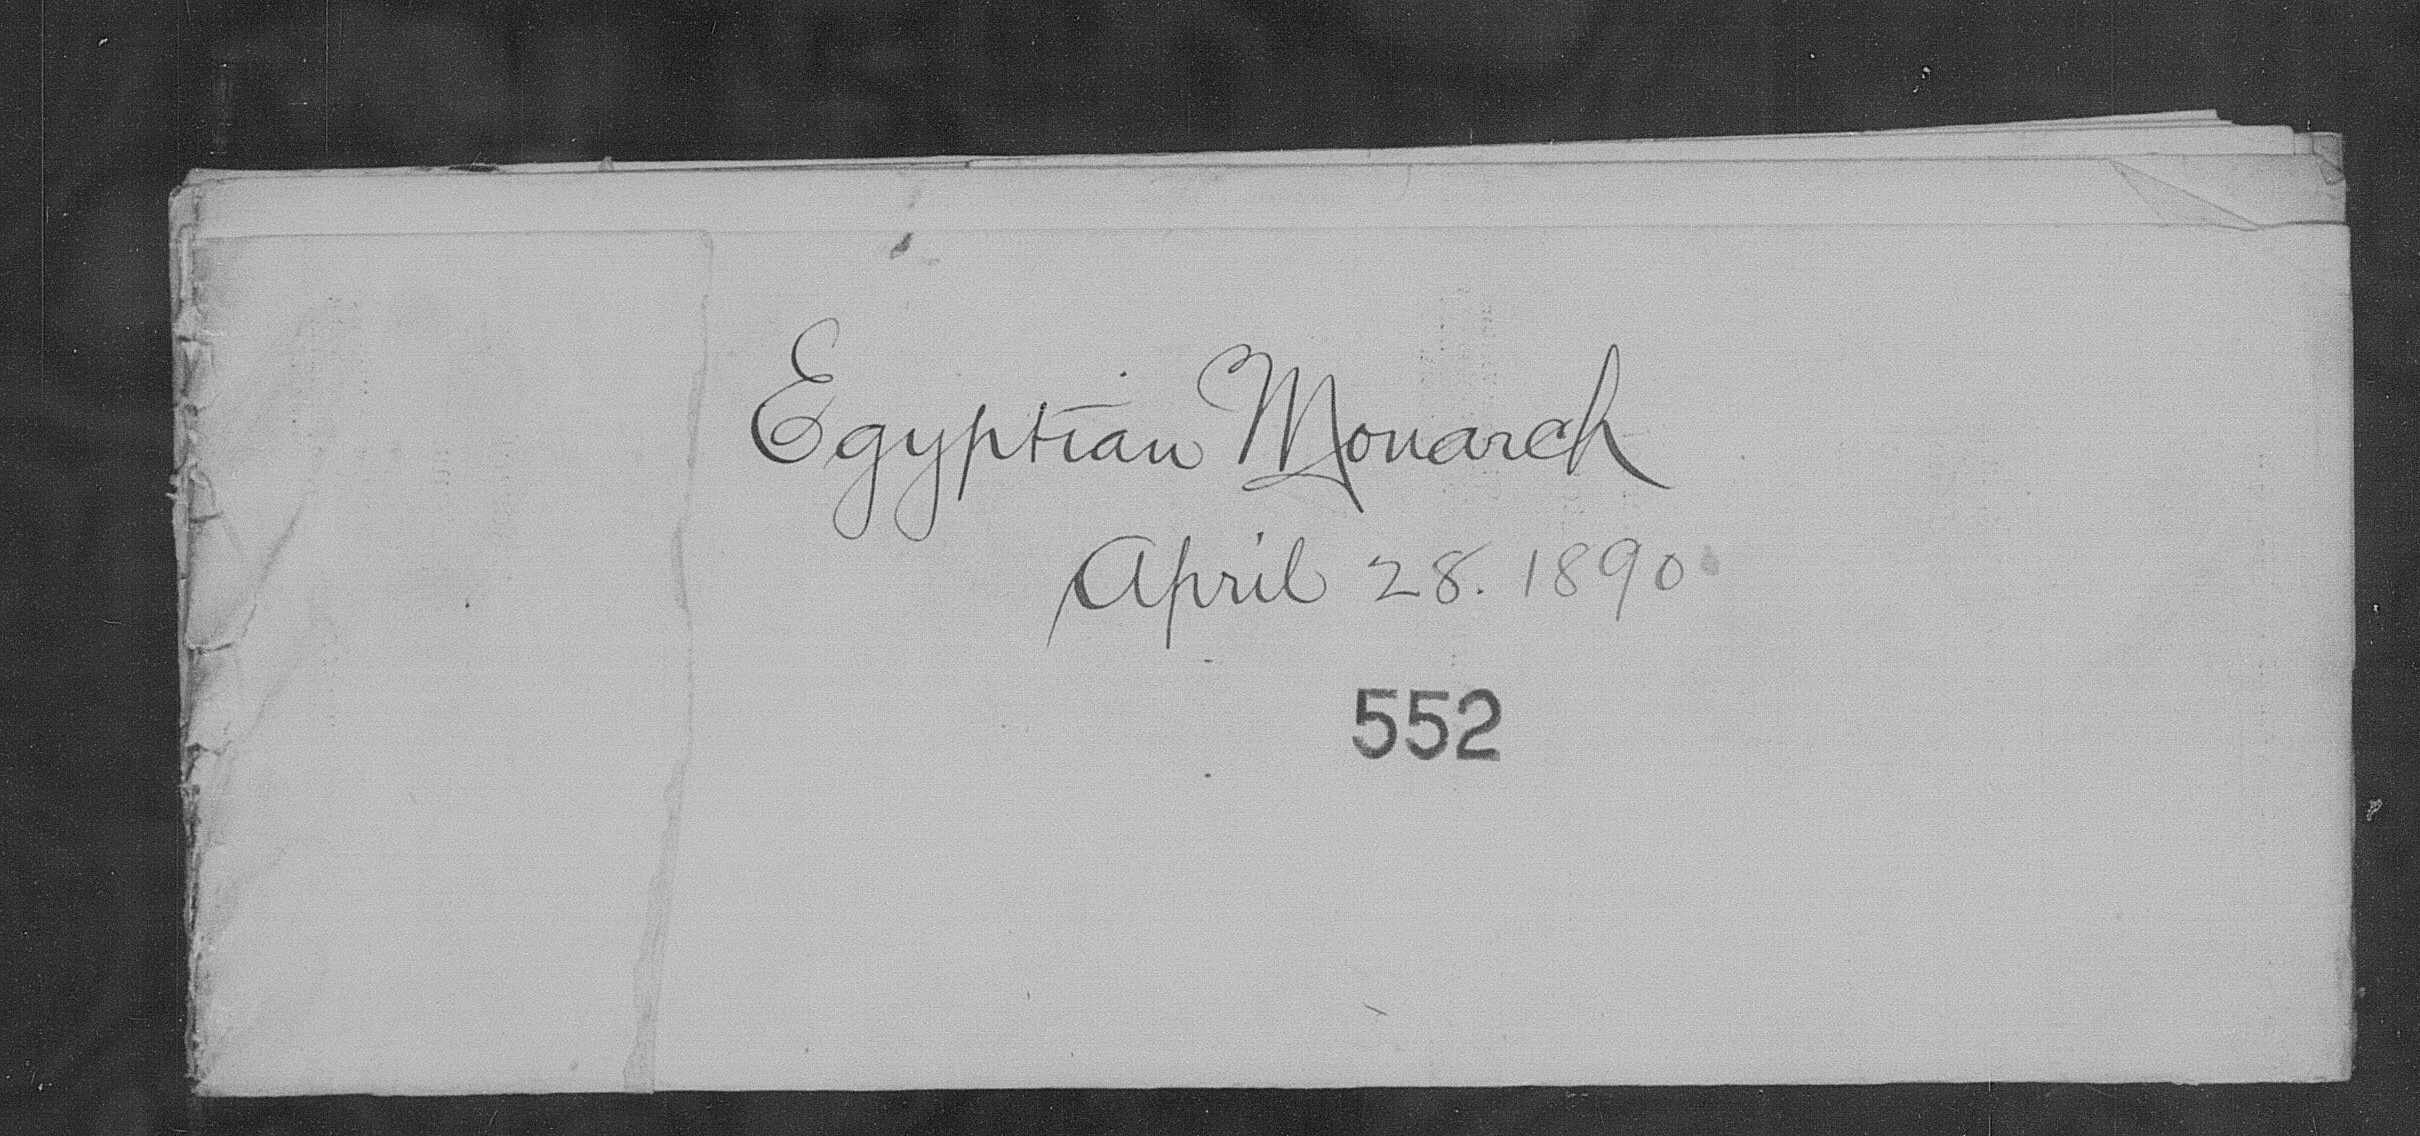 Egyptian Monarch
April 28. 1890
552